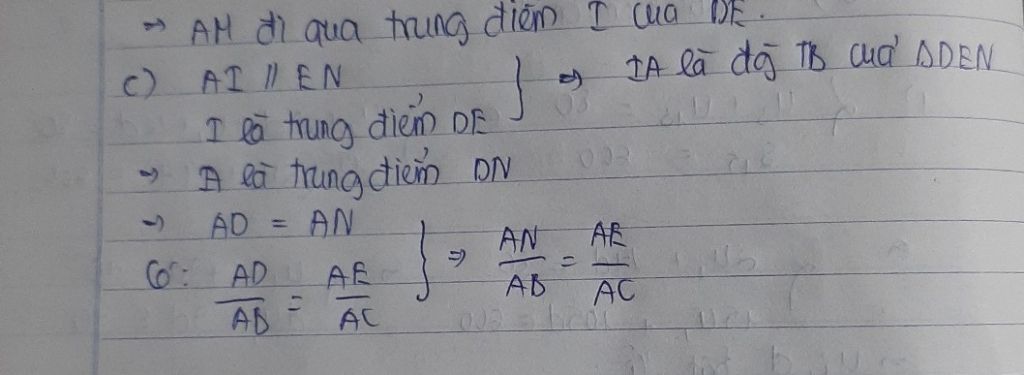 ⇒ AM đi qua trung điểm I của DE.
c) AI // EN } ⇒ IA là đg TB của ΔDEN
I là trung điểm DE
⇒ A là trung điểm DN
⇒ AD = AN
Có: AD/AB = AE/AC } ⇒ AN/AB = AE/AC